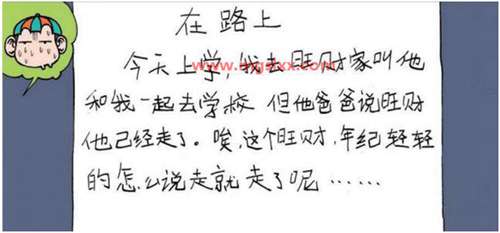 在路上
今天上学,我去旺财家叫他
和我一起去学校 但他爸爸说旺财
他已经走了。唉,这个旺财,年纪轻轻
的怎么说走就走了呢……